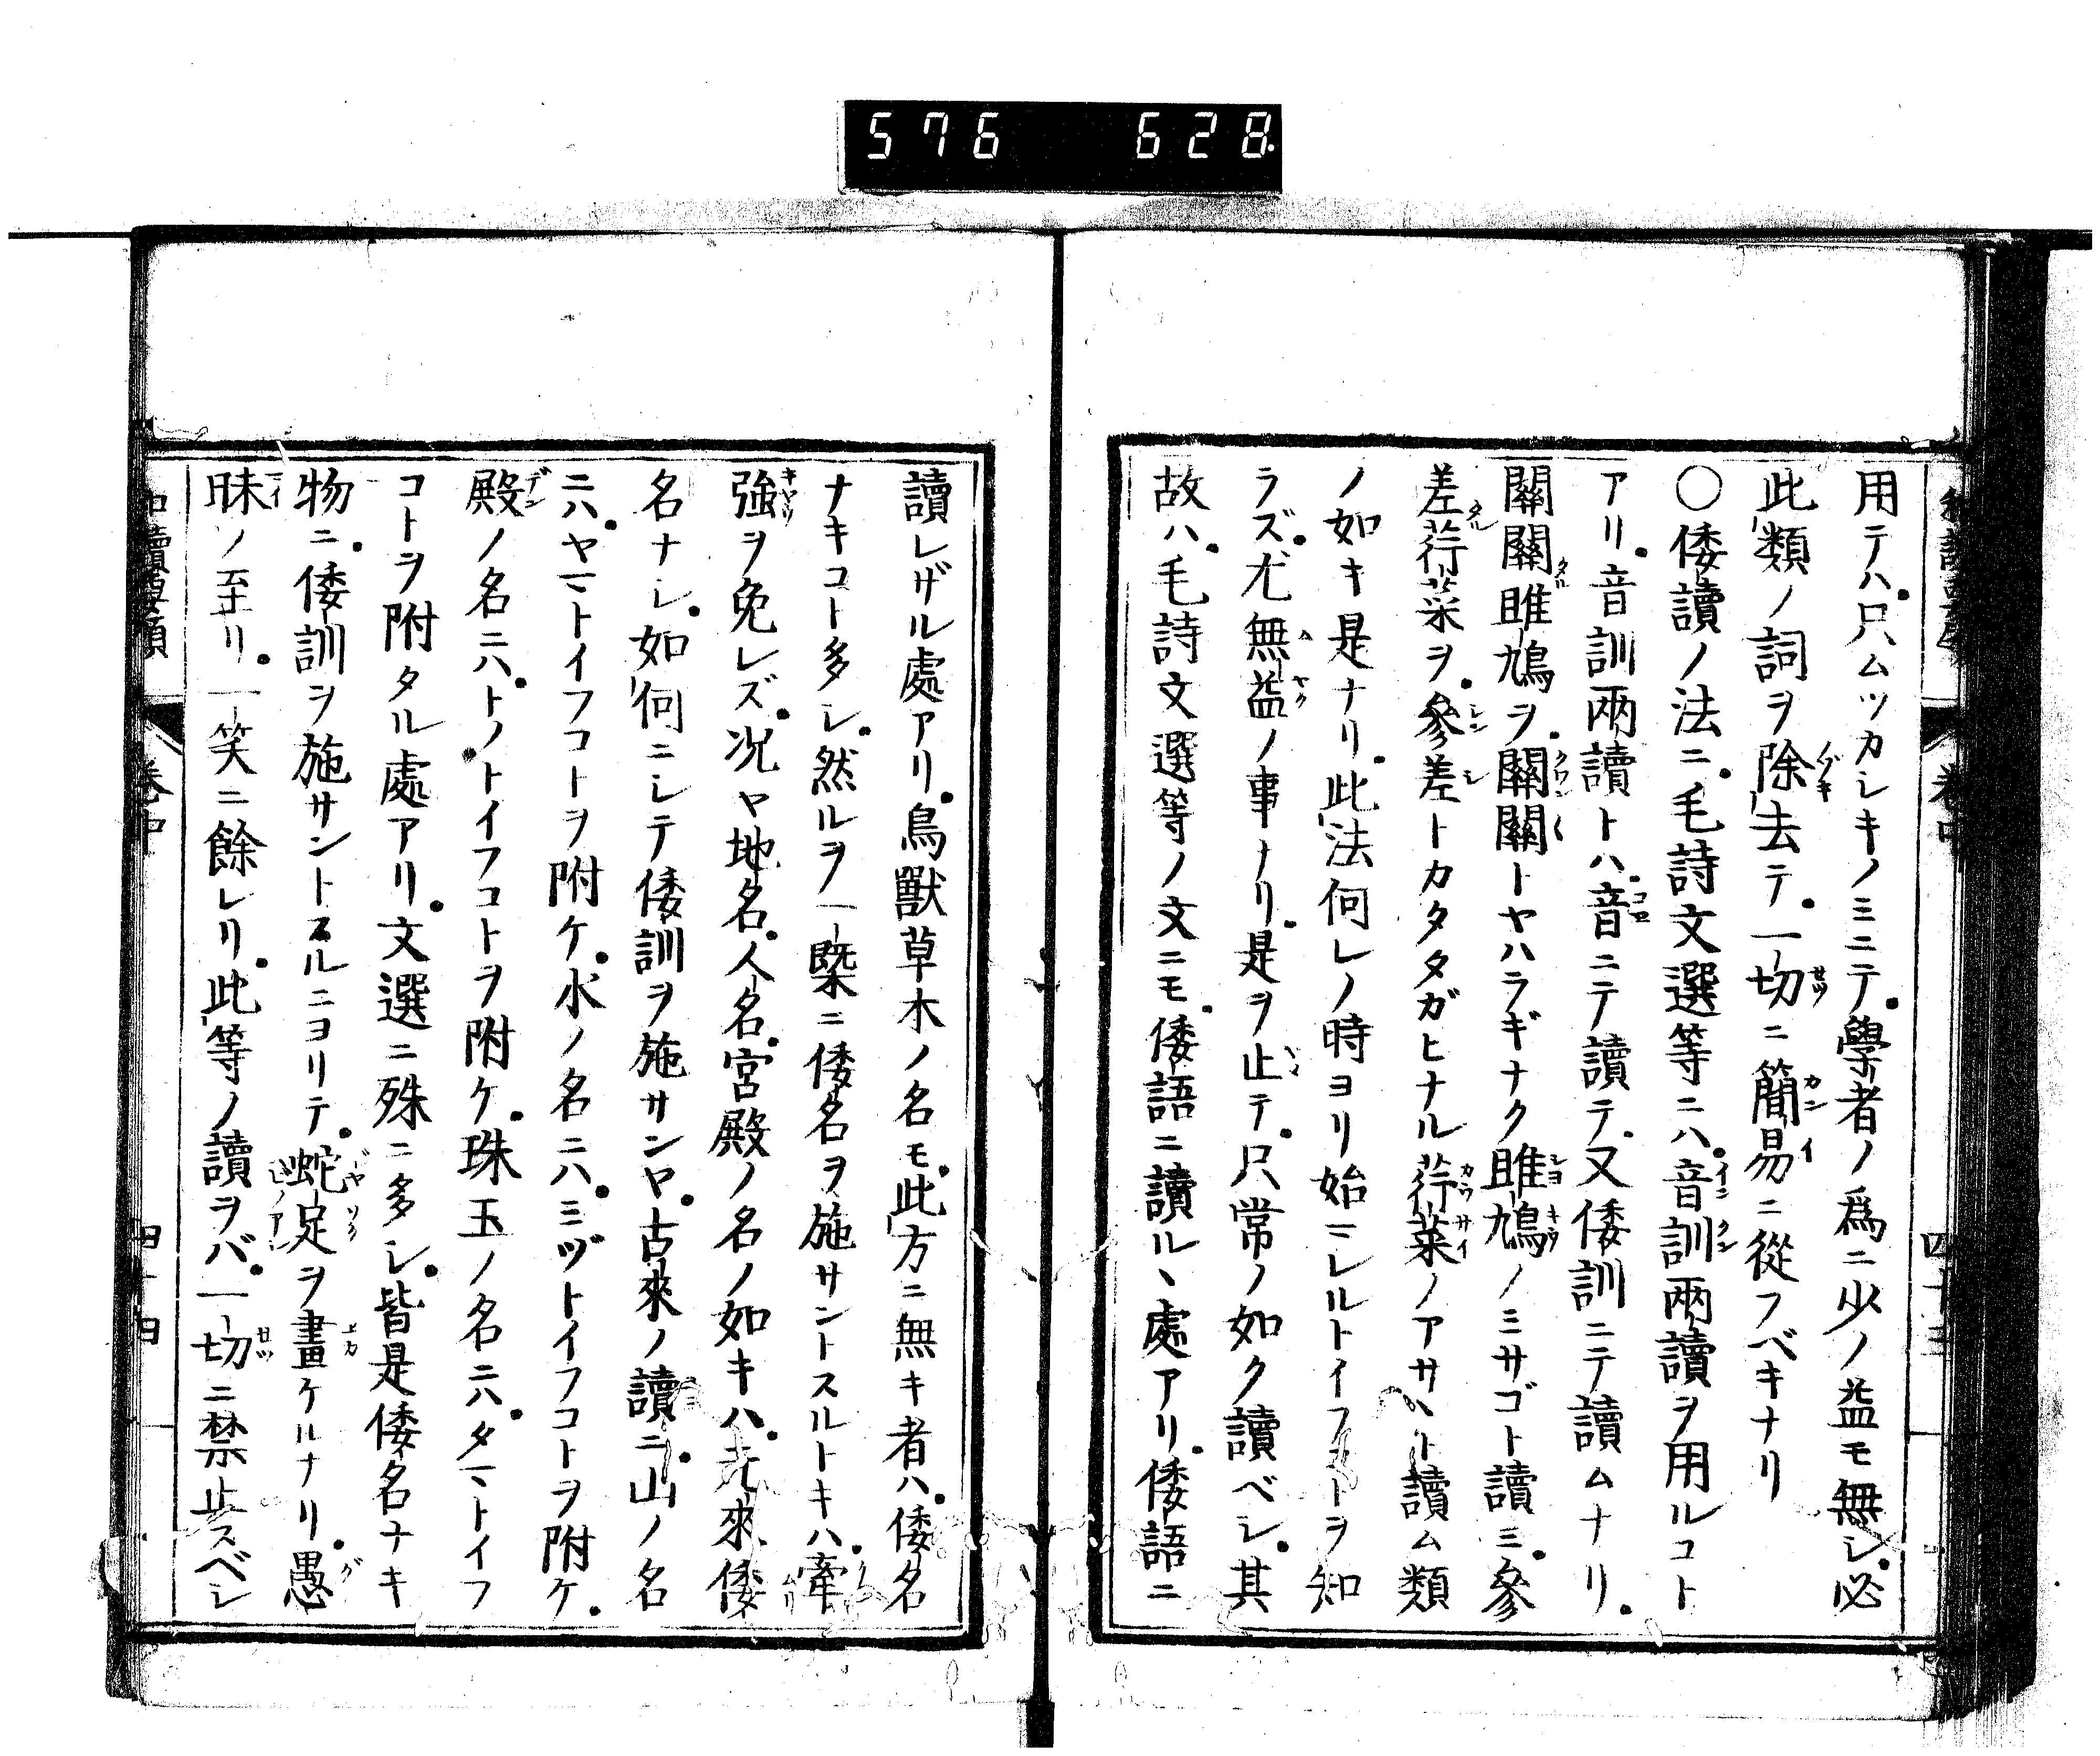 576 628
卷中
用テハ只ムツカシキノミニテ學者ノ爲ニ少ノ益モ無シ必
此類ノ詞ヲ除去テ一切ニ簡易ニ從フベキナリ
〇倭讀ノ法ニ毛詩文選等ニハ音訓兩讀ヲ用ルコト
アリ音訓兩讀トハ音ニテ讀テ又倭訓ニテ讀ムナリ
關關雎鳩ヲ關關トヤハラギナク雎鳩ノミサゴト讀ミ參
差荇菜ヲ參差トカタタガヒナル荇菜ノアサヽト讀ム類
ノ如キ是ナリ此法何レノ時ヨリ始マレルトイフコトヲ知
ラズ尤無益ノ事ナリ是ヲ止テ只常ノ如ク讀ベシ其
故ハ毛詩文選等ノ文ニモ倭語ニ讀ルヽ處アリ倭語ニ
讀レザル處アリ鳥獸草木ノ名モ此方ニ無キ者ハ倭名
ナキコト多シ然ルヲ一槩ニ倭名ヲ施サントスルトキハ牽
強ヲ免レズ况ヤ地名人名宮殿ノ名ノ如キハ元來倭
名ナシ如何ニシテ倭訓ヲ施サンヤ古來ノ讀ニ山ノ名
ニハヤマトイフコトヲ附ケ水ノ名ニハミヅトイフコトヲ附ケ
殿ノ名ニハトノトイフコトヲ附ケ珠玉ノ名ニハタマトイフ
コトヲ附タル處アリ文選ニ殊ニ多シ皆是倭名ナキ
物ニ倭訓ヲ施サントスルニヨリテ蛇足ヲ畫ケルナリ愚
昧ノ至リ一笑ニ餘レリ此等ノ讀ヲバ一切ニ禁止スベシ
卷中